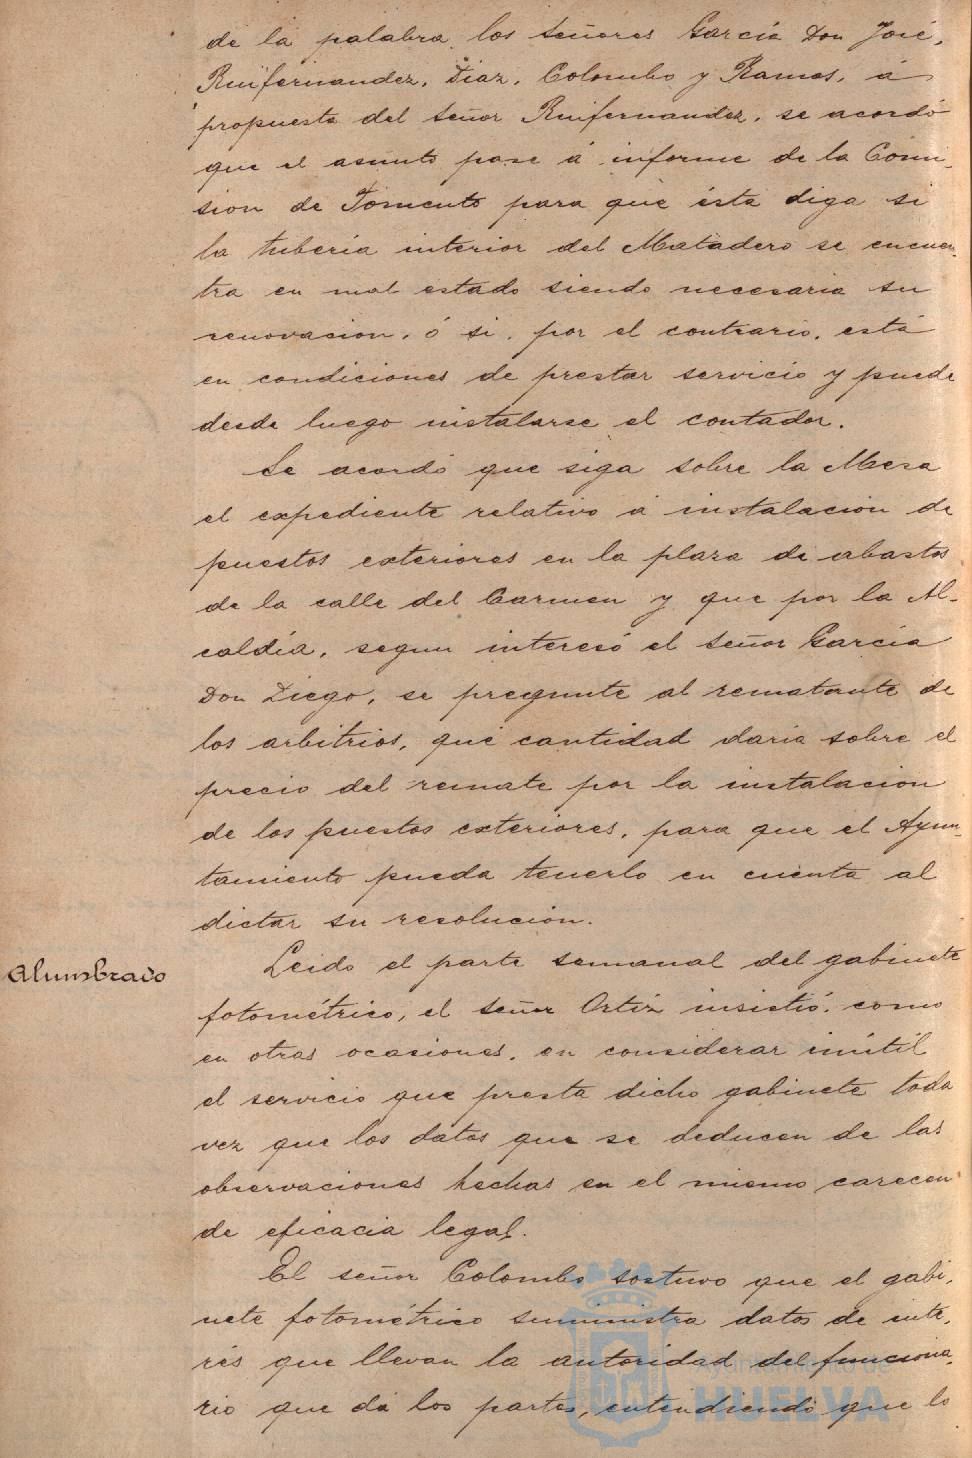 de la palabra los señores García Don José,
Ruifernandez, Diaz, Colombo y Ramos, á
propuesta del señor Ruifernandez, se acordó
que el asunto pase á informe de la Comi-
sion de Fomento para que ésta diga si
la tubería interior del Matadero se encuen-
tra en mal estado siendo necesaria su
renovacion, ó si, por el contrario, está
en condiciones de prestar servicio y puede
desde luego instalarse el contador.
Se acordó que siga sobre la Mesa
el expediente relativo á instalacion de
puestos exteriores en la plaza de abastos
de la calle del Carmen y que por la Al-
caldía, segun interesó el señor García
Don Diego, se pregunte al rematante de
los arbitrios, qué cantidad daria sobre el
precio del remate por la instalacion
de los puestos exteriores, para que el Ayun-
tamiento pueda tenerlo en cuenta al
dictar su resolución.
Alumbrado
Leido el parte semanal del gabinete
fotométrico, el señor Ortiz insistió, como
en otras ocasiones, en considerar inútil
el servicio que presta dicho gabinete toda
vez que los datos que se deducen de las
observaciones hechas en el mismo carecen
de eficacia legal.
El señor Colombo sostuvo que el gabi-
nete fotométrico suministra datos de inte-
rés que llevan la autoridad del funciona-
rio que dá los partes, entendiendo que lo
Ayuntamiento de
HUELVA